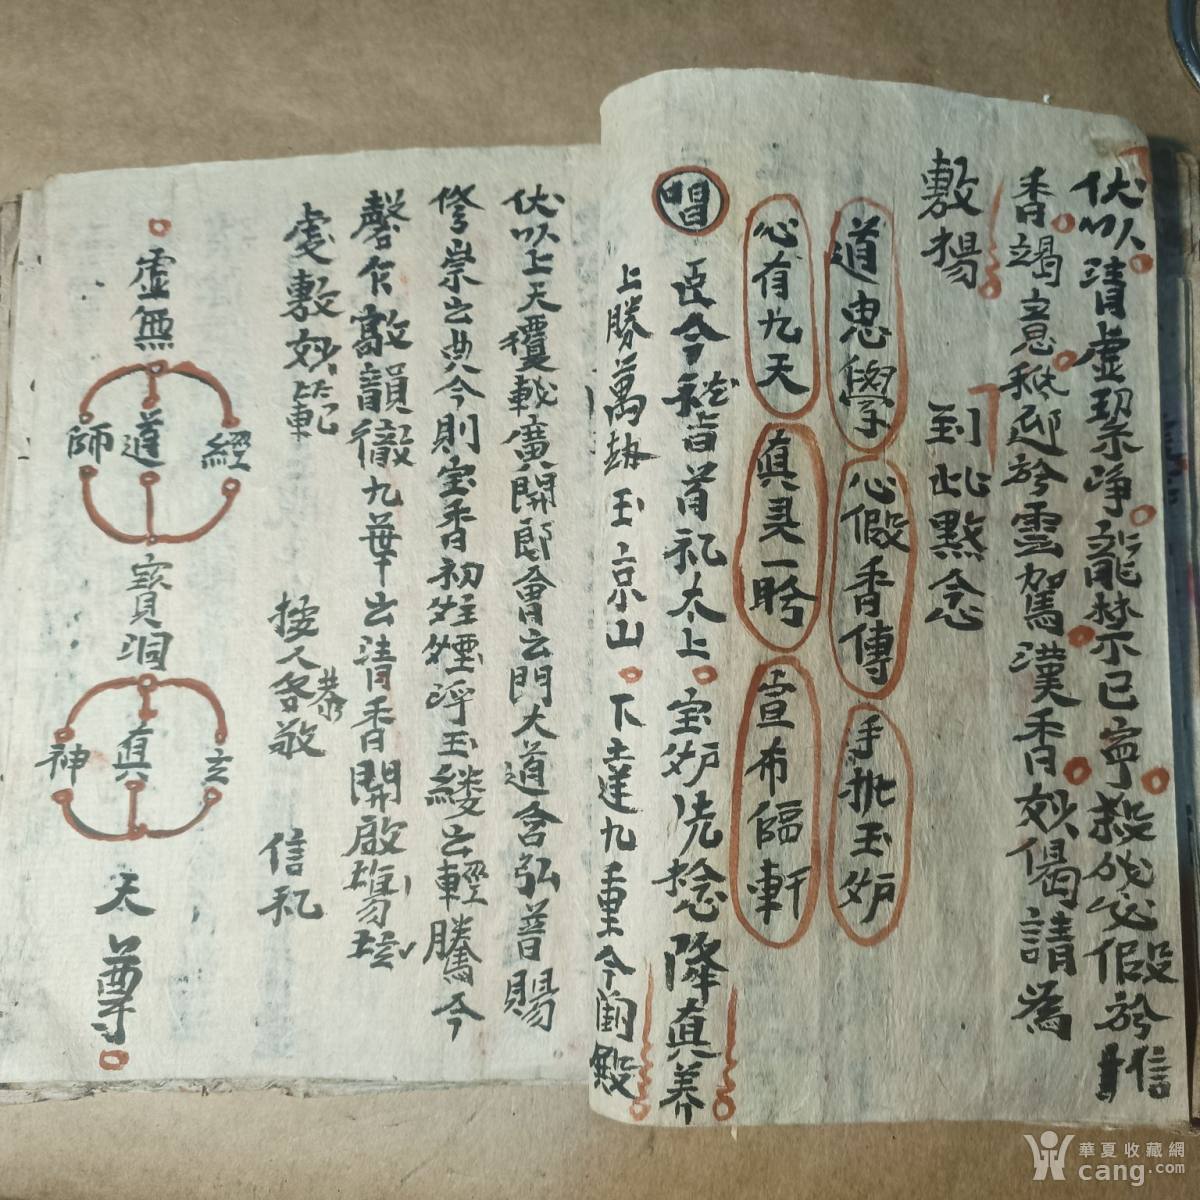 伏以清虚界净龍禁已寧殺伐必假於信
香竭意秘迎於雲駕漢香妙偈請為
敷揚 到此點念
道忠學 心假香傳 手批玉炉
心有九天 真灵一盻 宣布临軒
唱 臣今稽首礼太上 宝炉先捻降真养
上勝萬劫玉京山 下達九重今闕殿
伏以上天覆載廣開郎會玄門大道含弘普賜
修崇玄典今則宝香初姓煙浮玉縷玄輕騰今
磬乍敲韻徹九華玄清香開啟
處敷妙範
接人各恭敬 信礼
虛無
師道經
寶洞
神真玄
天尊
華夏收藏網
cang.com